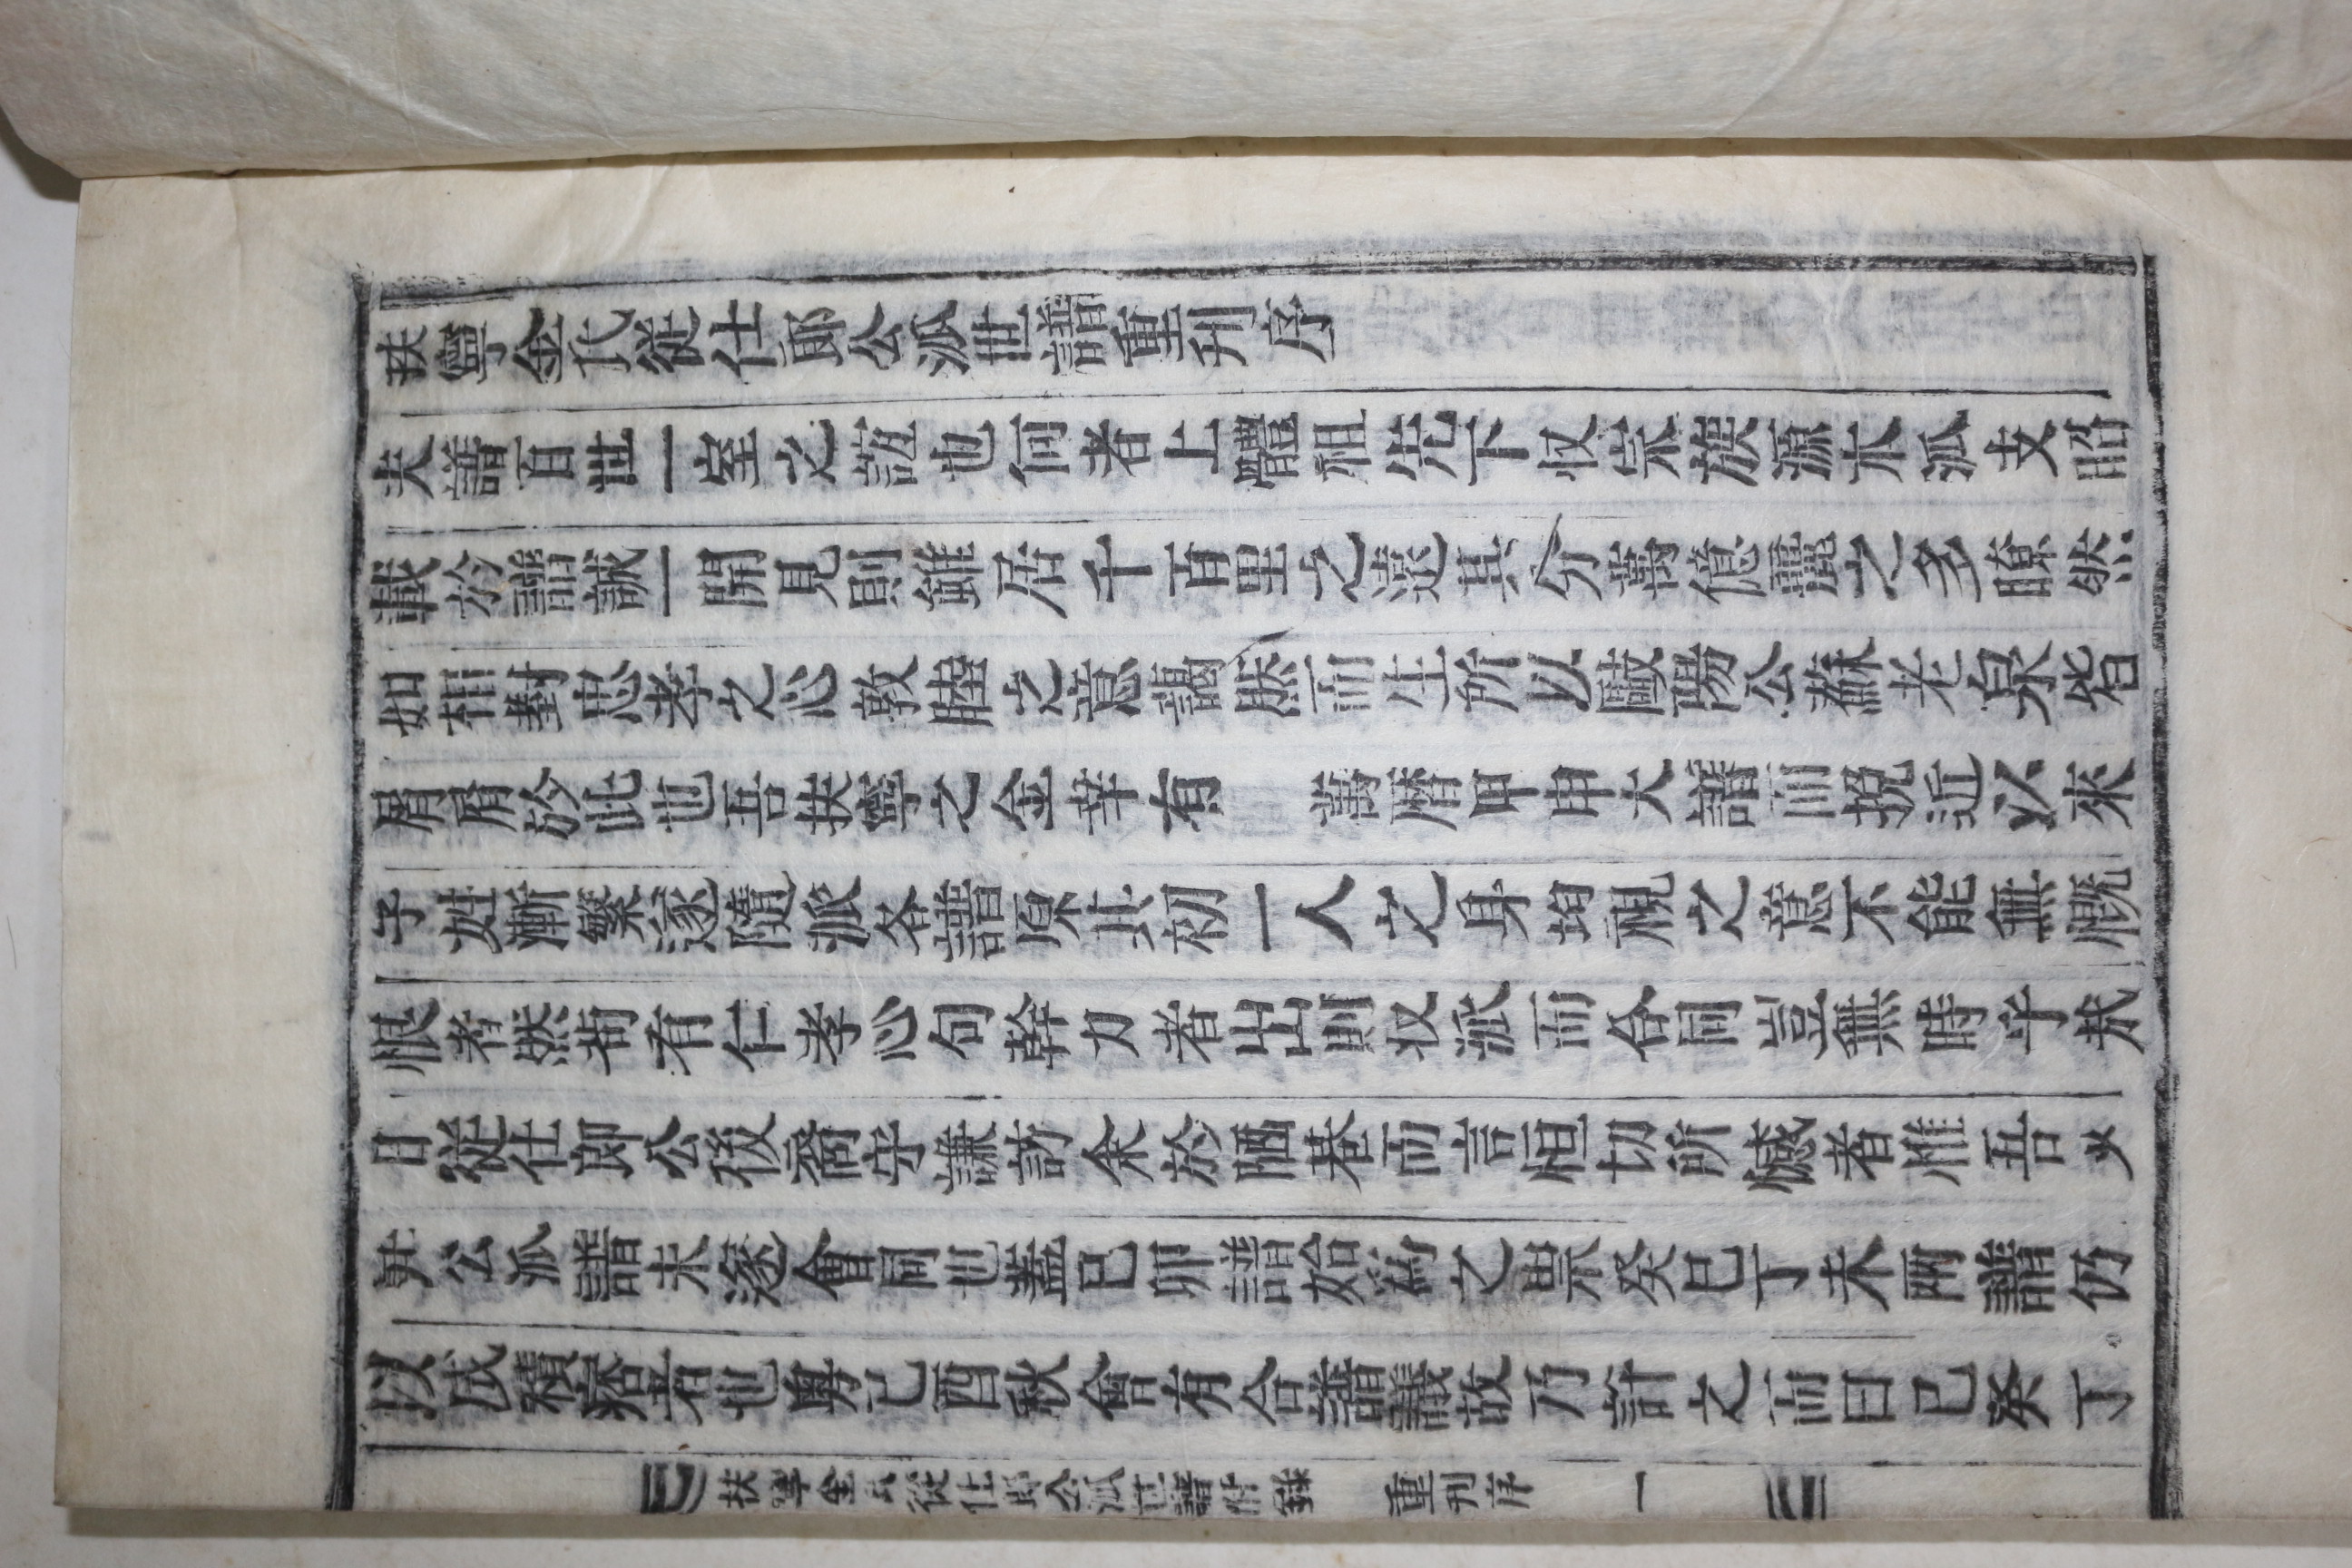 扶寧金氏從仕郞公派世譜重刊序
夫譜百世一室之誼也何者上體祖先下収宗族源木派支昭
載於譜誠一開見則雖居千百里之遠其分萬億麗之多瞭然
如相對忠孝之心敦睦之意藹然而生所以歐陽公蘇老泉皆
屑屑於此也吾扶寧之金幸有 萬曆甲申大譜而挽近以來
子姓漸繁遂隨派各譜原其初一人之身均視之意不能無慨
恨者然苟有仁孝心句幹力者出則収派而合同豈無時乎哉
日從仕郞公後裔守謙訪余於陋巷而言恒切所憾者惟吾少
尹公派譜未遂會同也蓋己卯譜始爲之祟癸巳丁未兩譜仍
以成積痞者也粤己酉秋會有合譜議故乃許之而曰己癸丁
扶寧金氏從仕郞公派世譜附錄 重刊序 一